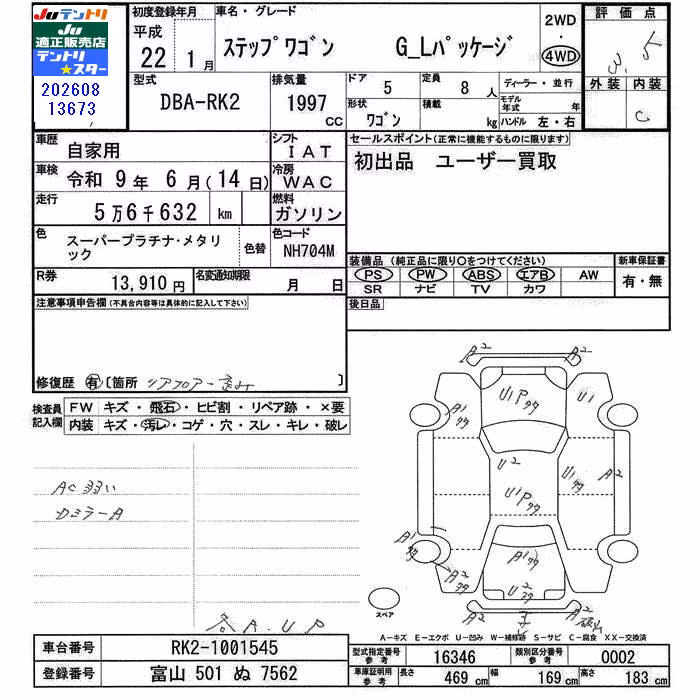 JUテントリ
JU
適正販売店
テントリ
★スター
202608
13673
初度登録年月
平成
22 1 月
車名・グレード
ステップワゴン G_Lパッケージ
2WD
・
4WD
評価点
3.5
外装 内装
C
型式
DBA-RK2
排気量
1997 CC
ドア
5
形状
ワゴン
定員
8 人
積載
kg
ディーラー・並行
モデル年式 年
ハンドル 左・右
車歴
自家用
シフト
IAT
車検
令和 9年 6月(14日)
冷房
WAC
走行
5万6千632 km
燃料
ガソリン
色
スーパープラチナ・メタリック
色替
色コード
NH704M
R券
13,910円
名変通知期限
月 日
セールスポイント(正常に機能するものに限ります)
初出品 ユーザー買取
装備品(純正品に限り〇をつけてください)
新車保証書
PS PW ABS エアB AW
有・無
SR ナビ TV カワ
後日品
注意事項申告欄(不具合内容等は具体的に記入して下さい)
修復歴 有〔箇所 リアフロアー歪み 〕
検査員
記入欄
FW キズ・飛石・ヒビ割・リペア跡・×要
内装 キズ・汚レ・コゲ・穴・スレ・キレ・破レ
AC弱い
DミラーA
各A.U.P
A2
A2
U1P
U1
A1
U2
U1
A2
U1P
A1
A1
A2
U2
A2
A2
スペア
A-キズ E-エクボ U-凹み W-補修跡 S-サビ C-腐食 XX-交換済
車台番号
RK2-1001545
登録番号
富山 501 ぬ 7562
型式指定番号
参考
16346
類別区分番号
参考
0002
車庫証明用
参考
長さ 469 cm
幅 169 cm
高さ 183 cm